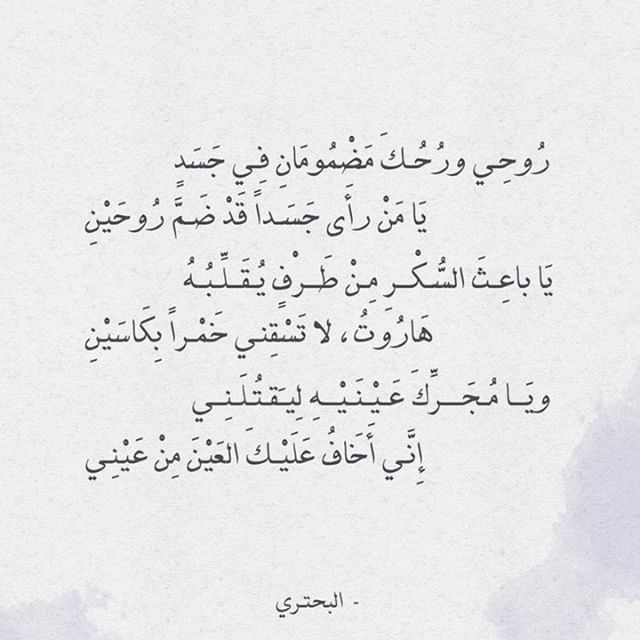 رُوحِي ورُحُكَ مَضْمُومَانِ فِي جَسَدٍ
يَا مَنْ رأَى جَسَداً قَدْ ضَمَّ رُوحَيْنِ
يَا باعِثَ السُّكْرِ مِنْ طَرْفٍ يُقَلِّبُهُ
هَارُوتُ، لا تَسْقِني خَمْراً بِكَاسَيْنِ
ويَا مُجَرِّكَ عَيْنَيْهِ لِيَقتُلَنِي
إِنَّي أَخَافُ عَلَيْكَ العَيْنَ مِنْ عَيْنِي
- البحتري